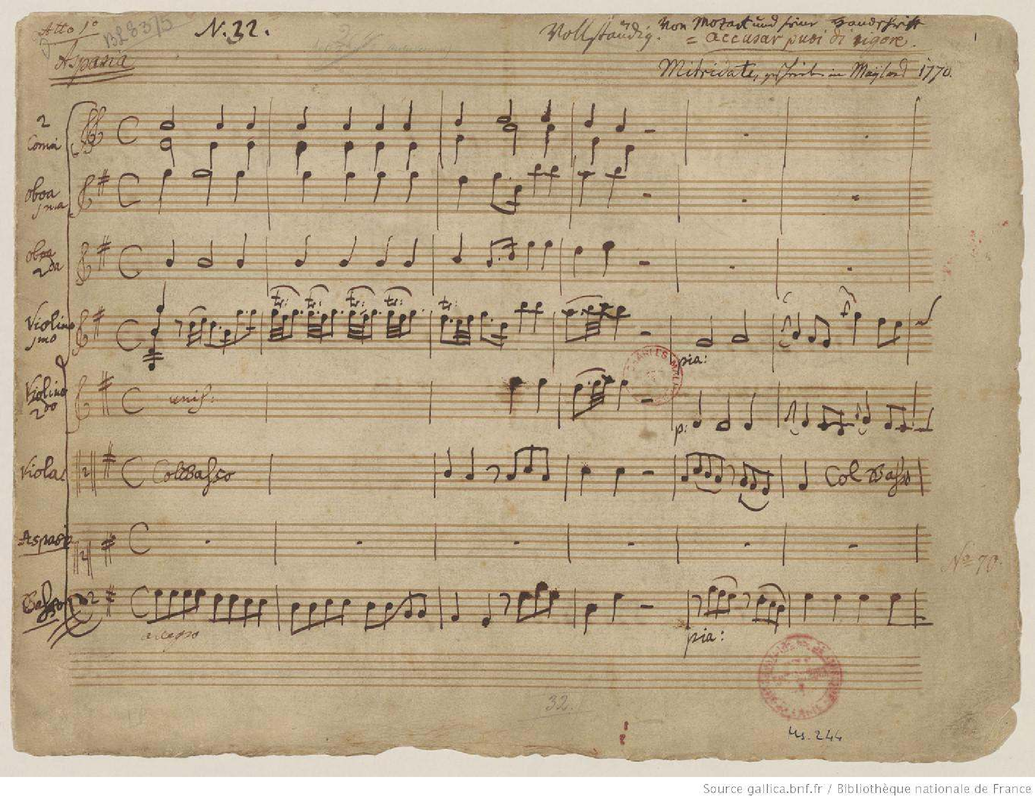 Atto 1º
BL 83/5
N. 32.
Vollständig. Von Mozart und seiner Handschrift
= accusar puoi di rigore.
Aspasia
Mitridate, geschrieben in Mayland 1770.
2
Corni
oboa
1ma
oboa
2da
Violino
1mo
tr: tr: tr: tr: tr:
pia:
Violino
2do
unis:
p:
Violas
Col Basso
Col Basso
Aspasia
No 70.
Basso
pia:
32.
Ms. 244
Source gallica.bnf.fr / Bibliothèque nationale de France